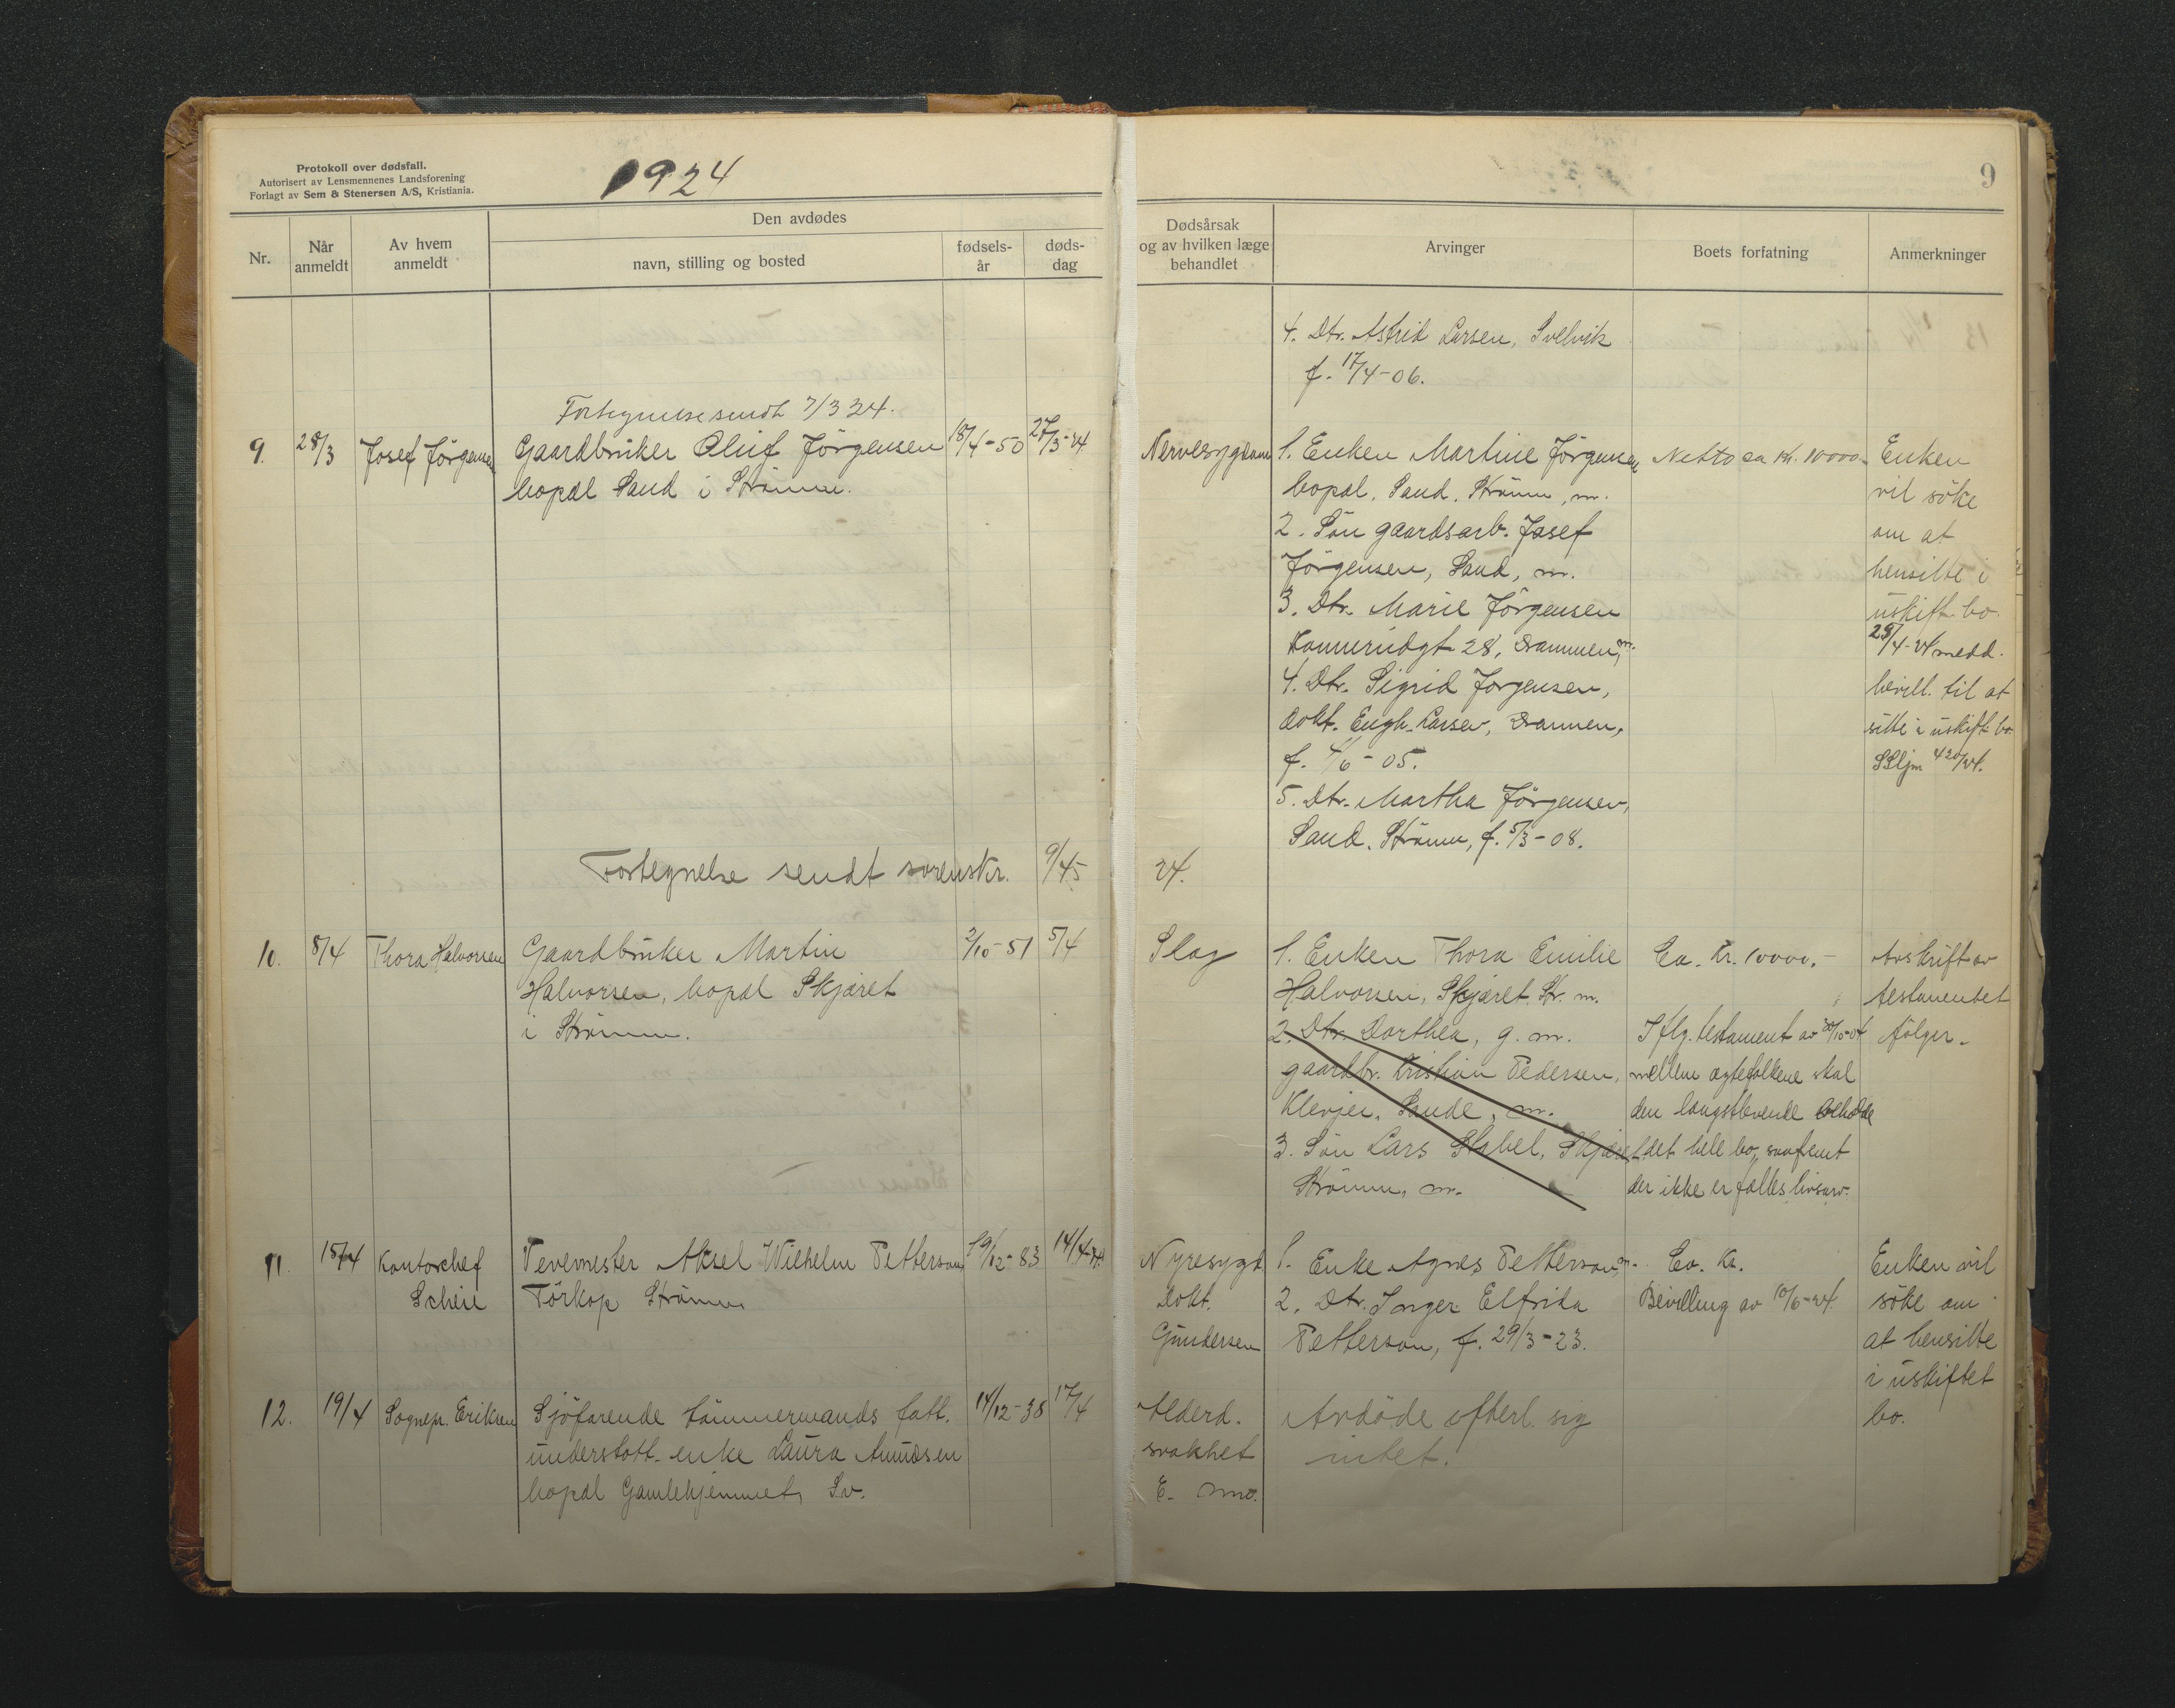 Protokoll over dødsfall.
Autorisert av Lensmennenes Landsforening
Forlagt av Sem & Stenersen A/S, Kristiania.
1924
Nr.
Når anmeldt
Av hvem anmeldt
Den avdødes
navn, stilling og bosted
fødsels-år
døds-dag
Fortegnelse sendt 7/3 24.
9. 28/3 Josef Jörgensen Gaardbruker Oluf Jörgensen 18/4-50 27/3-24
bopæl Sand i Strömm.
Fortegnelse sendt sorenskr. 9/45
10. 8/4 Thora Halvorsen Gaardbruker Martin 2/10-51 5/4
Halvorsen, bopæl Skjæret
i Strömm.
11. 15/4 Kontorchef Vevemester Aksel Wilhelm Petterson 19/12-83 14/4-24
Scheie Törkop Strömm
12. 19/4 Sognepr. Eriksen Sjöfarende tömmermands fatt. 14/12-38 17/4
understött. enke Laura Amundsen
bopæl Gamlehjemmet, Sv.
9
Dødsårsak
og av hvilken læge
behandlet
Arvinger
Boets forfatning
Anmerkninger
4. Dtr. Astrid Larsen, Svelvik
f. 17/4-06.
Nervesygdom
1. Enken Martine Jörgensen
bopæl. Sand. Strömm, m.
2. Sön gaardsarb. Josef
Jörgensen, Sand, m.
3. Dtr. Marie Jörgensen
Konnerudgt 28, Drammen, m.
4. Dtr. Sigrid Jörgensen,
Dokt. Engh-Larsen, Drammen,
f. 4/6-05.
5. Dtr. Martha Jörgensen,
Sand. Strömm, f. 5/3-08.
Netto ca kr. 10000.-
Enken
vil söke
om at
hensitte i
uskift. bo.
28/4-24 medd.
bevill. til at
sitte i uskift. bo
420/24.
24.
Slag
1. Enken Thora Emilie
Halvorsen, Skjæret. Str. m.
2. Dtr. Dorthea, g. m.
gaardbr. Kristian Pedersen,
Klevjer, Sande, m.
3. Sön Lars Stabel, Skjæret
Strömm, m.
Ca. Kr. 10000.-
I flg. testament av 20/10-04
mellem ægtefolkene skal
den længstlevende beholde
det hele bo, saafremt
der ikke er fælles livsarv.
Avskrift av
testamentet
fölger.
Nyresygd.
Dokt.
Gundersen
1. Enke Agnes Petterson, m.
2. Dtr. Inger Elfrida
Petterson, f. 29/3-23.
Ca. Kr.
Bevilling av 10/6-24.
Enken vil
söke om
at hensitte
i uskiftet
bo.
Alderd.
svakhet
Avdöde efterl. sig
intet.